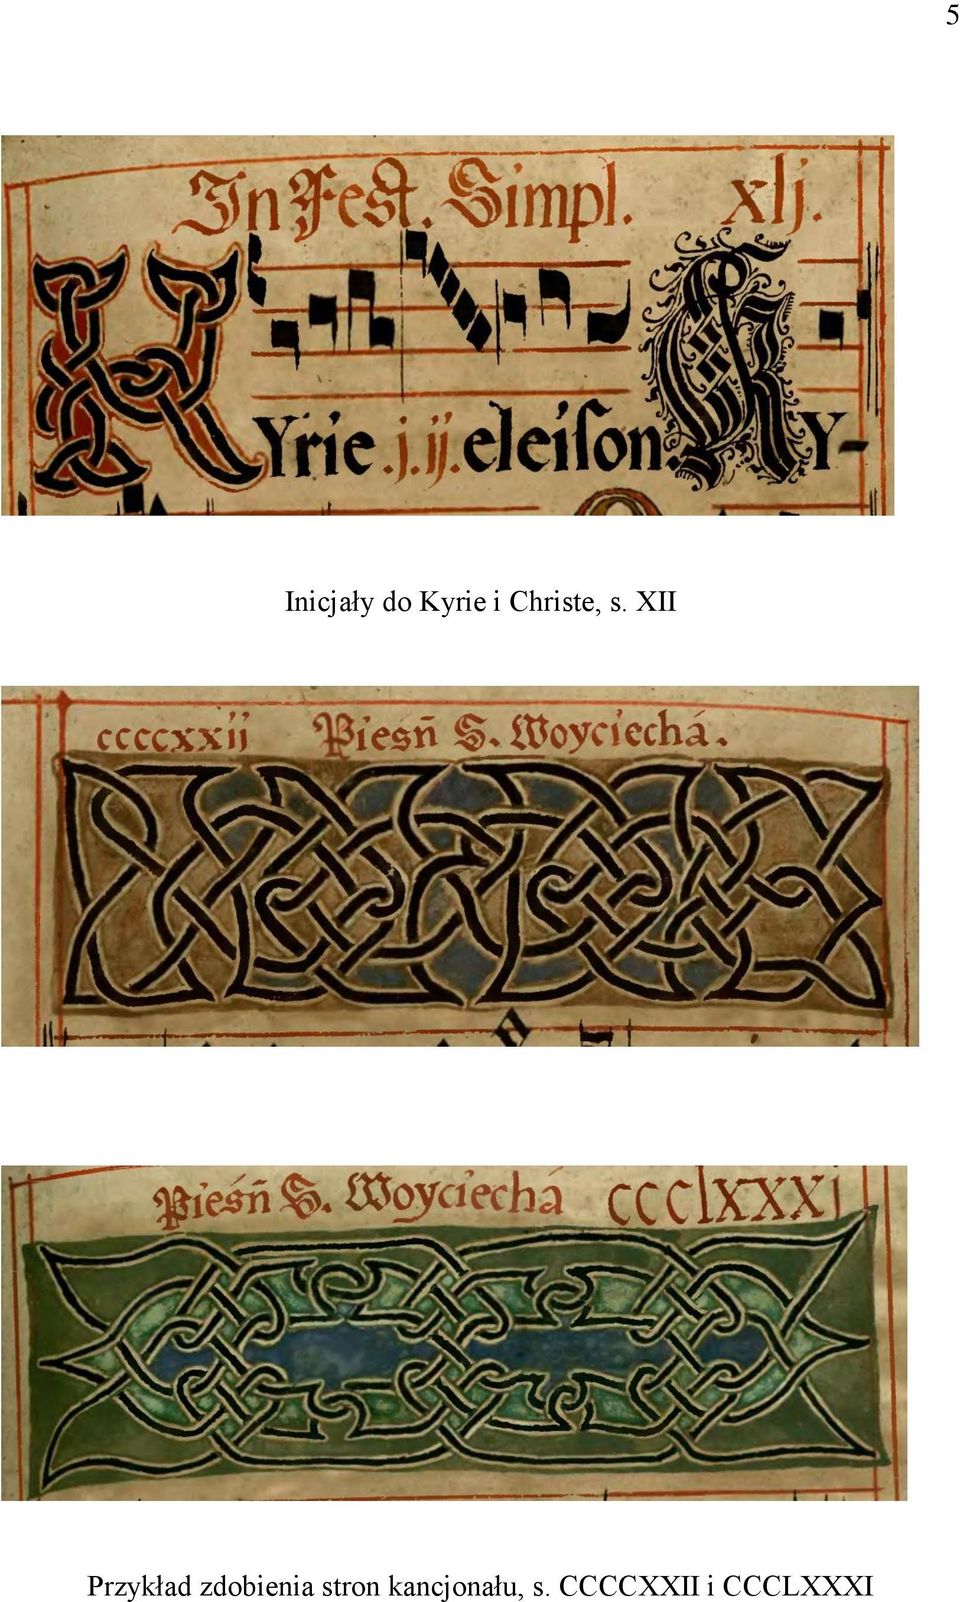 5
In Fest. Simpl. xlj.
Kyrie .j.ij. eleiſon. Ky-
Inicjały do Kyrie i Christe, s. XII
ccccxxij Pieśń S. Woyciechá.
Pieśń S. Woyciechá CCClXXXI
Przykład zdobienia stron kancjonału, s. CCCCXXII i CCCLXXXI